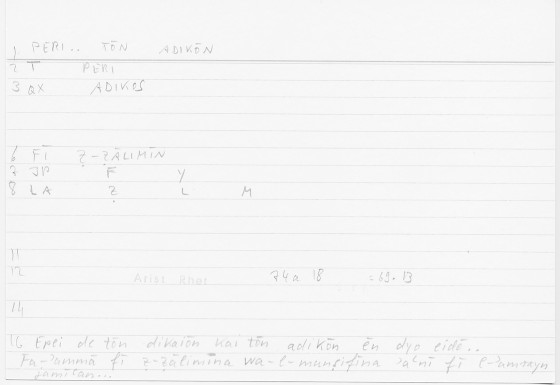 1 PERI.. TŌN ADIKŌN
2 T PERI
3 QX ADIKOS
6 FĪ Ẓ-ẒĀLIMĪN
7 JP F Y
8 LA Ẓ L M
11
12 Arist Rhet 74a 18 :69.13
14
16 Epei de tōn dikaiōn kai tōn adikōn ēn dyo eidē..
Fa-ʾammā fī ẓ-ẓālimīna wa-l-munṣifīna ʾaʿnī fī l-ʾamrayn
jamīʿan...